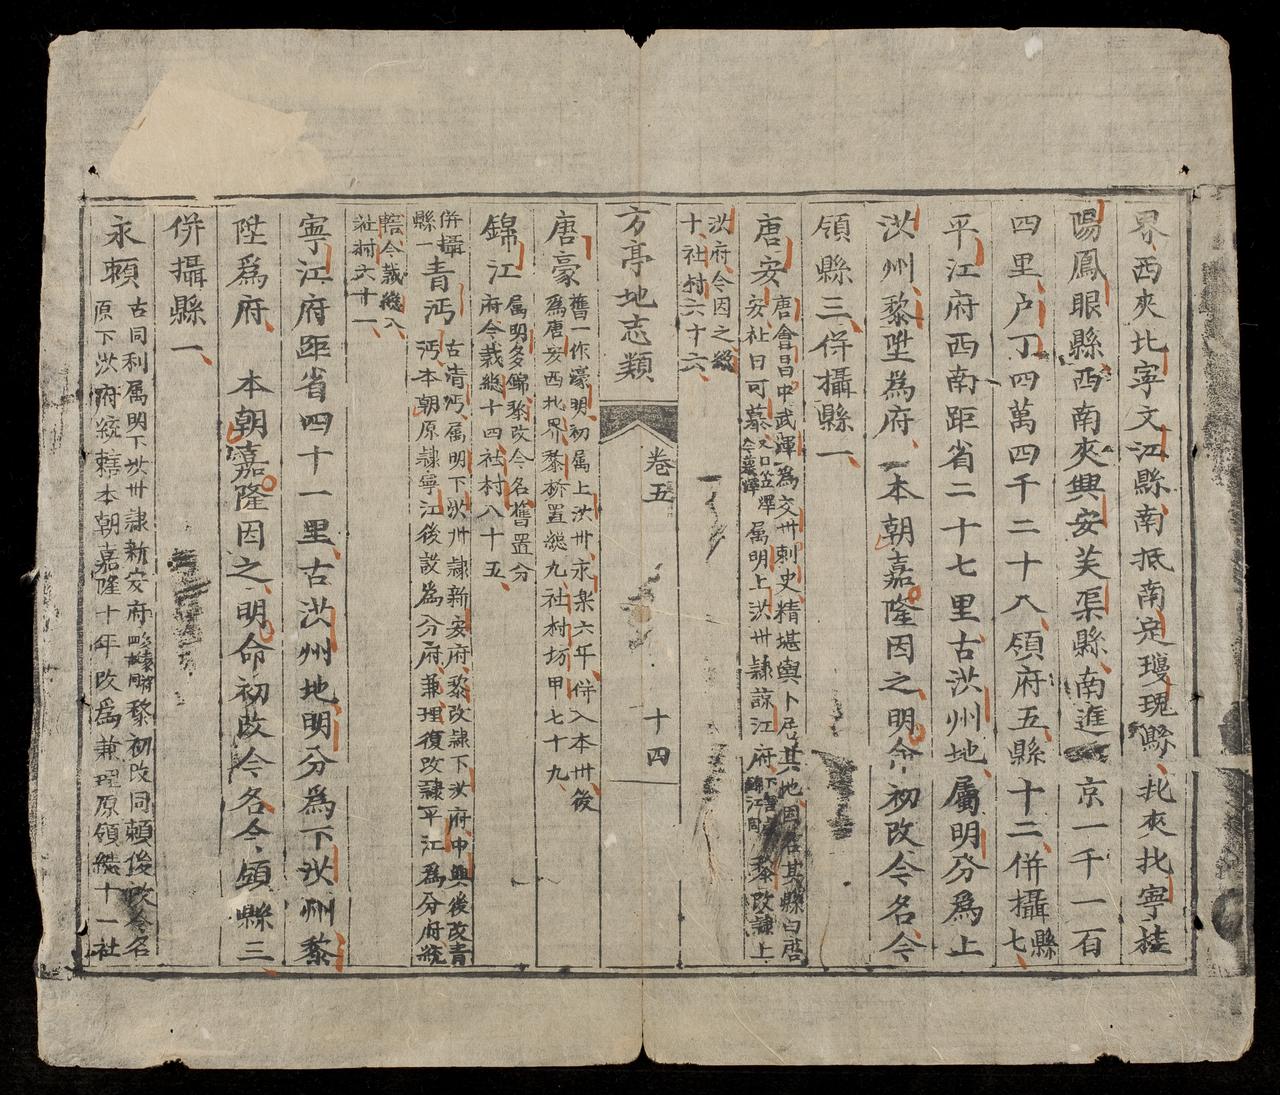 界西夾北寧文江縣南抵南定瓊瑰縣北夾北寧桂
陽鳳眼縣西南夾興安芙渠縣南進京一千一百
四里户丁四萬四千二十八領府五縣十二併攝縣七
平江府西南距省二十七里古洪州地屬明分爲上
洪州黎陞爲府本朝嘉隆因之明命初改今名今
領縣三併攝縣一
唐安
唐會昌中武渾爲交州刺史精堪輿卜居其地因名其縣白啓
安社日可慕
属明上洪州隷諒江府
黎改隷上
洪府今因之總
十社村六十六
方亭地志類
卷五
十四
唐豪
舊一作濠明初属上洪州永樂六年併入本州後
爲唐安西北界黎析置總九社村坊甲七十九
錦江
属明多錦黎改今名舊置分
府今裁總十四社村八十五
併攝
縣一
青沔
古青沔属明下洪州隷新安府黎改隷下洪府中興後改青
沔本朝原隷寧江後設爲分府兼理復改隷平江爲分府統
轄今裁總八
社村六十一
寧江府距省四十一里古洪州地明分爲下洪州黎
陞爲府本朝嘉隆因之明命初改今名今領縣三
併攝縣一
永賴
古同利属明下洪州隷新安府
黎初改同賴後改今名
原下洪府統轄本朝嘉隆十年改爲兼理原領總十一社